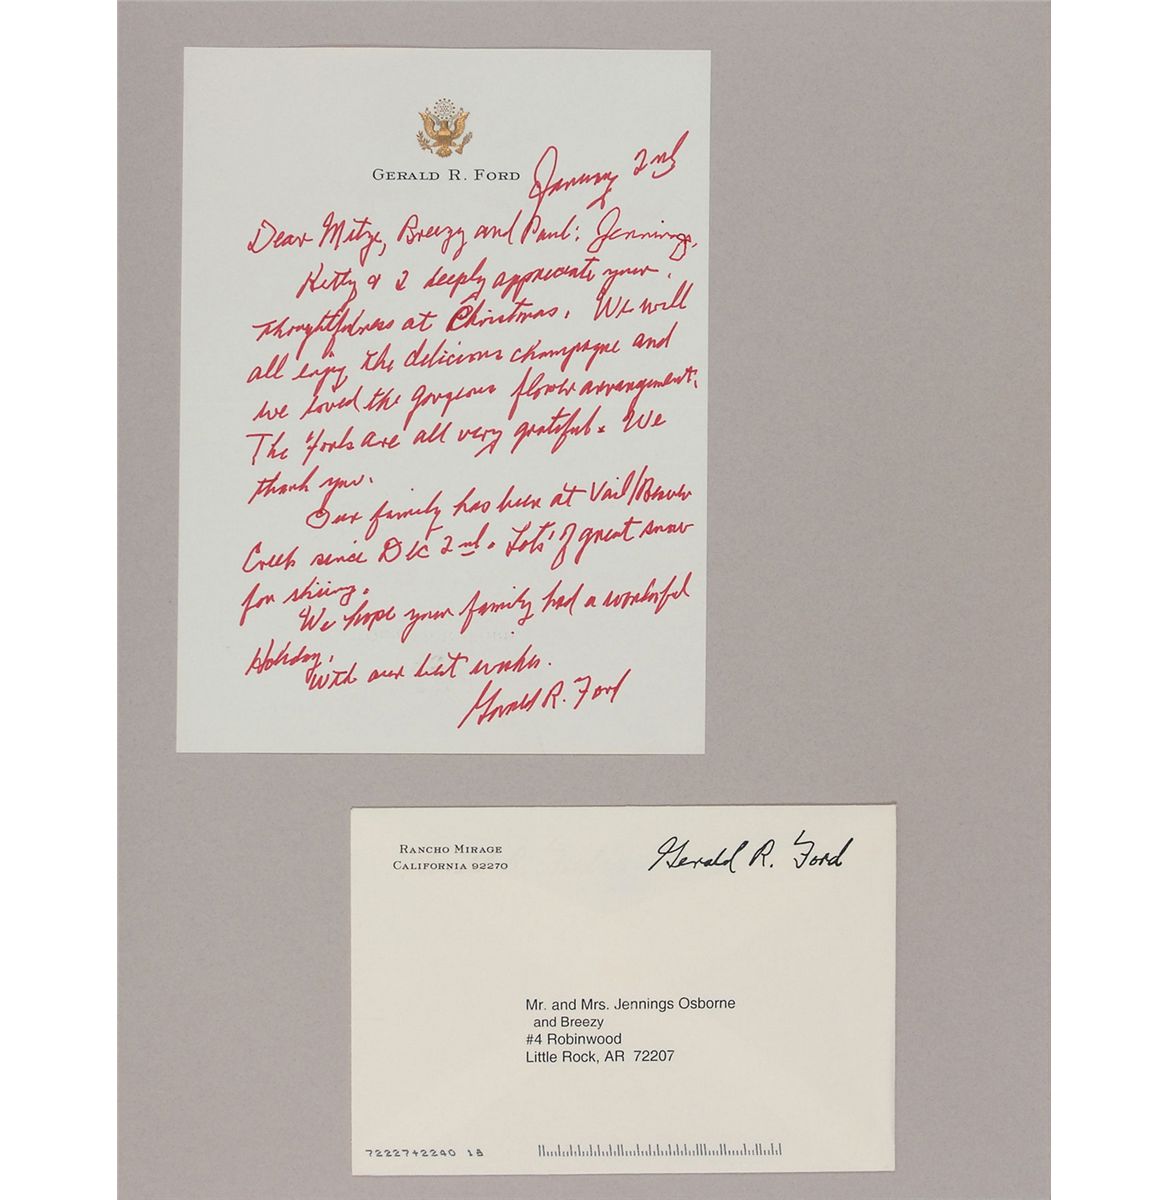 GERALD R. FORD
January 2nd
Dear Mitze, Breezy and Paul: Jennings,
Betty & I deeply appreciate your
thoughtfulness at Christmas. We will
all enjoy the delicious champagne and
we loved the gorgeous flower arrangement.
The Fords are all very grateful. We
thank you.
Our family has been at Vail/Beaver
Creek since Dec 2nd. Lots of great snow
for skiing.
We hope your family had a wonderful
Holiday.
With our best wishes.
Gerald R. Ford
RANCHO MIRAGE
CALIFORNIA 92270
Gerald R. Ford
Mr. and Mrs. Jennings Osborne
and Breezy
#4 Robinwood
Little Rock, AR 72207
7222742240 18